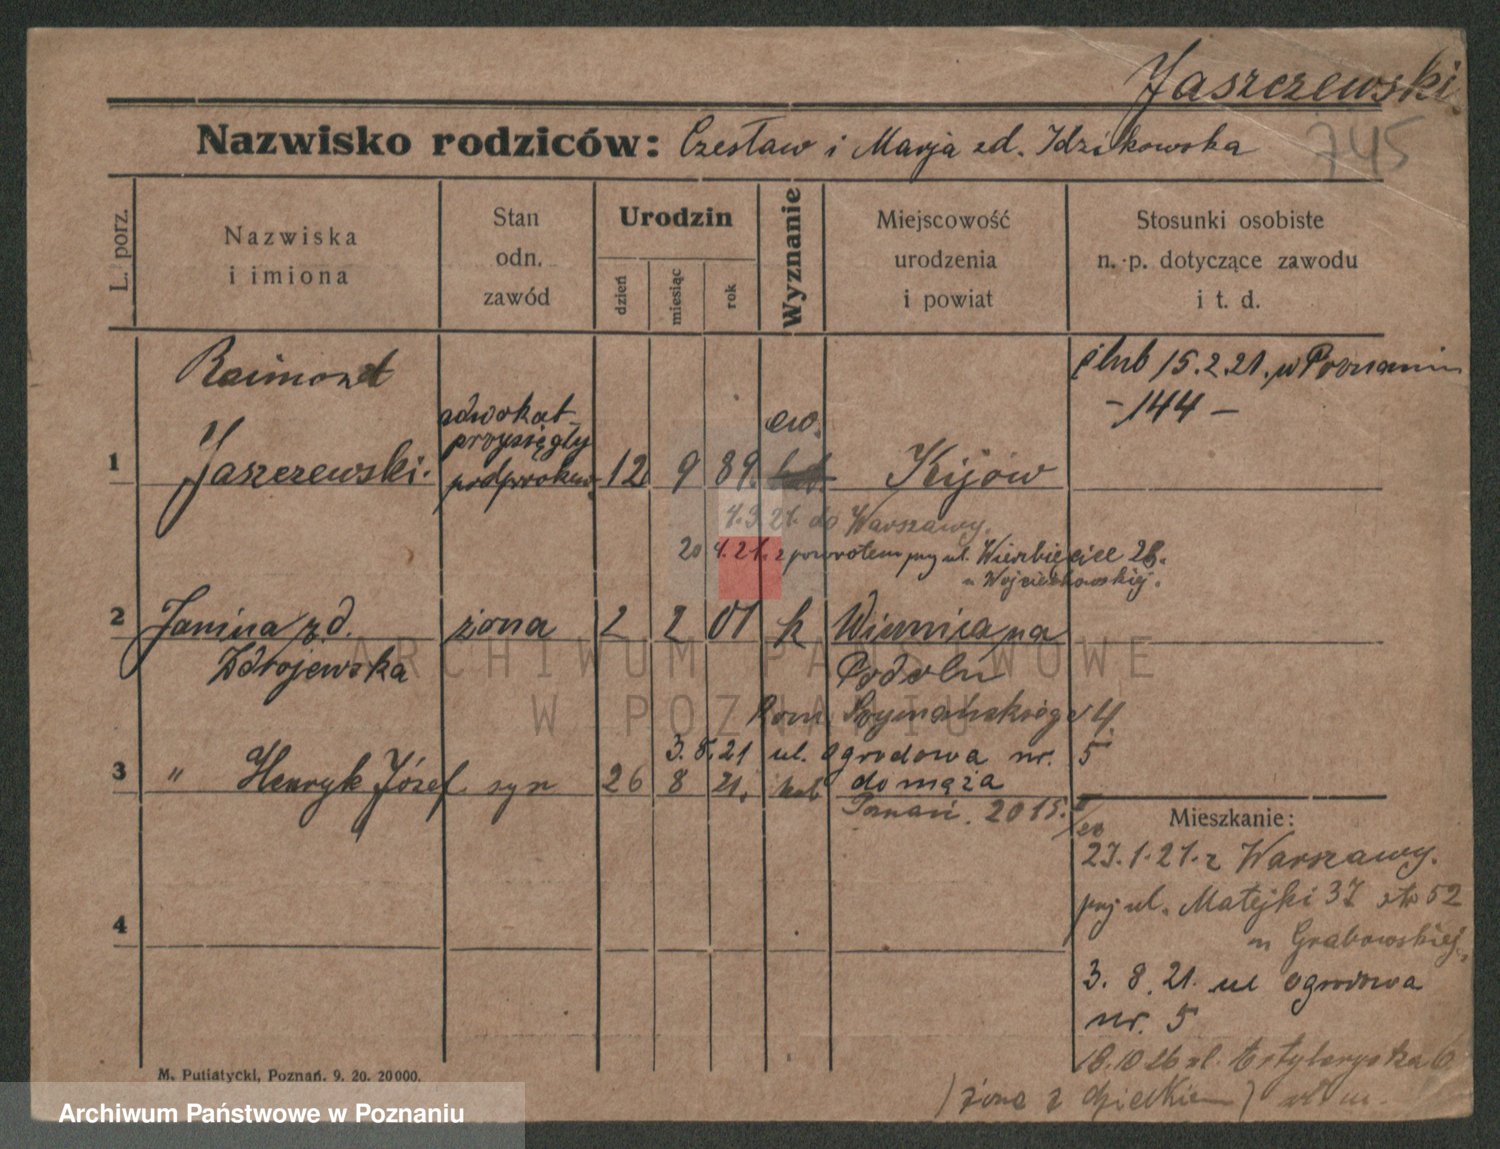 Jaszczewski
745
Nazwisko rodziców: Czesław i Marja zd. Idzikowska
L. porz.
Nazwiska
i imiona
Stan
odn.
zawód
Urodzin
dzień
miesiąc
rok
Wyznanie
Miejscowość
urodzenia
i powiat
Stosunki osobiste
n. p. dotyczące zawodu
i t. d.
Raimond
ślub 15.2.21. w Poznaniu
-144-
adwokat
przysięgły
ew.
1 Jaszczewski. podprokur. 12 9 89. Kijów
4.3.21. do Warszawy.
20 4.21. z powrotem przy ul. Wierzbięcice 26.
u Wojciechowskiej.
2 Janina zd. żona 2 2 01 k Winnica na
Zdrojewska Podolu
Szymańskiego 4
3.8.21 ul. Ogrodowa nr. 5
3 " Henryk Józef syn 26 8 21. do męża
Poznań. 2015.
Mieszkanie:
27.1.21. z Warszawy.
przy ul. Matejki 37 52
u Grabowskiej.
3. 8. 21. ul Ogrodowa
nr. 5
18.10.26 ul. Artyleryska 6
(żona z dzieckiem)
4
M. Putiatycki, Poznań. 9. 20. 20000.
ARCHIWUM PAŃSTWOWE
W POZNANIU
Archiwum Państwowe w Poznaniu